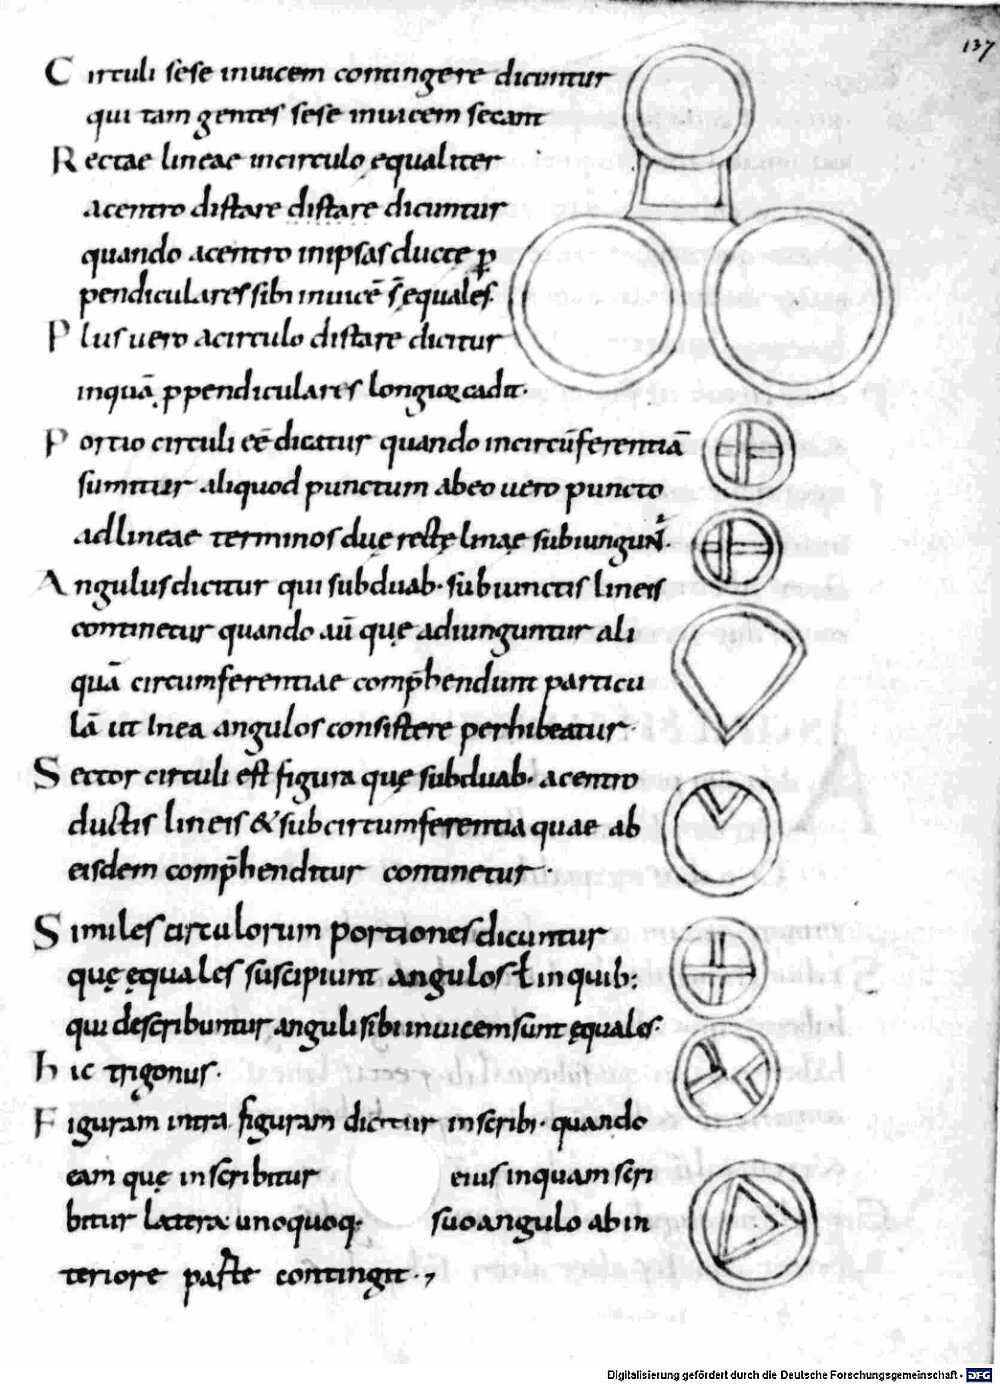 137
Circuli sese inuicem contingere dicuntur
qui tangentes sese inuicem secant
Rectae lineae incirculo equaliter
acentro distare distare dicuntur
quando acentro inipsas ducte p̱
pendiculares sibi inuicē s̄ equales.
Plus uero acirculo distare dicitur
inquā ꝑpendiculares longior cadit.
Portio circuli eē dicitur quando incircūferentiā
sumitur aliquod punctum abeo uero puncto
adlineae terminos duę rectę lineę subiungun̄t.
Angulus dicitur qui subduab. subiunctis lineis
continetur quando aū quę adiunguntur ali
quā circumferentiae comp̄hendunt particu
lā ut Inea angulos consistere perhibeatur.
Sector circuli est figura quę subduab. acentro
ductis lineis & subcircumferentia quae ab
eisdem comp̄henditur continetur.
Similes circulorum portiones dicuntur
quę ęquales suscipiunt angulos ł inquib;
qui describuntur anguli sibi inuicem sunt ęquales.
hic trigonus.
Figuram intra figuram dicitur inscribi. quando
eam quę inscribitur eius inquam scri
bitur latera unoquoq; suo angulo ab in
teriore parte contingit.,
Digitalisierung gefördert durch die Deutsche Forschungsgemeinschaft - DFG